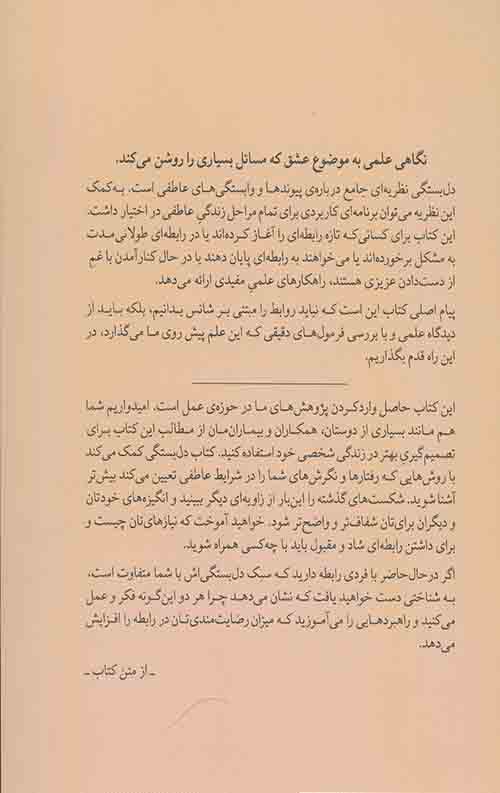 نگاهی علمی به موضوع عشق که مسائل بسیاری را روشن می‌کند.
دل‌بستگی نظریه‌ای جامع درباره‌ی پیوندها و وابستگی‌های عاطفی است. به‌کمک
این نظریه می‌توان برنامه‌ای کاربردی برای تمام مراحل زندگیِ عاطفی در اختیار داشت.
این کتاب برای کسانی‌که تازه رابطه‌ای را آغاز کرده‌اند یا در رابطه‌ای طولانی‌مدت
به مشکل برخورده‌اند یا می‌خواهند به رابطه‌ای پایان دهند یا در حال کنارآمدن با غم
از دست‌دادن عزیزی هستند، راهکارهای علمیِ مفیدی ارائه می‌دهد.
پیام اصلی کتاب این است کـه نباید روابط را مبتنی بـر شانس بدانیم، بلکه بـایـد از
دیدگاه علمی و با بررسی فرمول‌های دقیقی که این علم پیش روی ما می‌گذارد، در
این راه قدم بگذاریم.
این کتاب حاصل واردکردن پژوهش‌های ما در حوزه‌ی عمل است. امیدواریم شما
هم مانند بسیاری از دوستان، همکاران و بیماران‌مان از مطالب این کتاب برای
تصمیم‌گیریِ بهتر در زندگی شخصی خود استفاده کنید. کتاب دل‌بستگی کمک می‌کند
با روش‌هایی کـه رفتارها و نگرش‌های شما را در شرایط عاطفی تعیین می‌کند بیش‌تر
آشنا شوید. شکست‌های گذشته را این‌بار از زاویه‌ای دیگر ببینید و انگیزه‌های خودتان
و دیگران برای‌تان شفاف‌تر و واضح‌تر شود. خواهید آموخت که نیازهای‌تان چیست و
برای داشتن رابطه‌ای شاد و مقبول باید با چه‌کسی همراه شوید.
اگر در حال‌حاضر با فردی رابطه دارید کـه سبک دل‌بستگی‌اش با شما متفاوت است،
بـه شناختی دست خواهید یافت کـه نشان می‌دهـد چـرا هر دو این‌گونه فکر و عمل
می‌کنید و راهبردهـایی را می‌آموزید که میزان رضایت‌مندی‌تـان در رابطه را افزایش
می‌دهد.
ـ از متنِ کتاب ـ